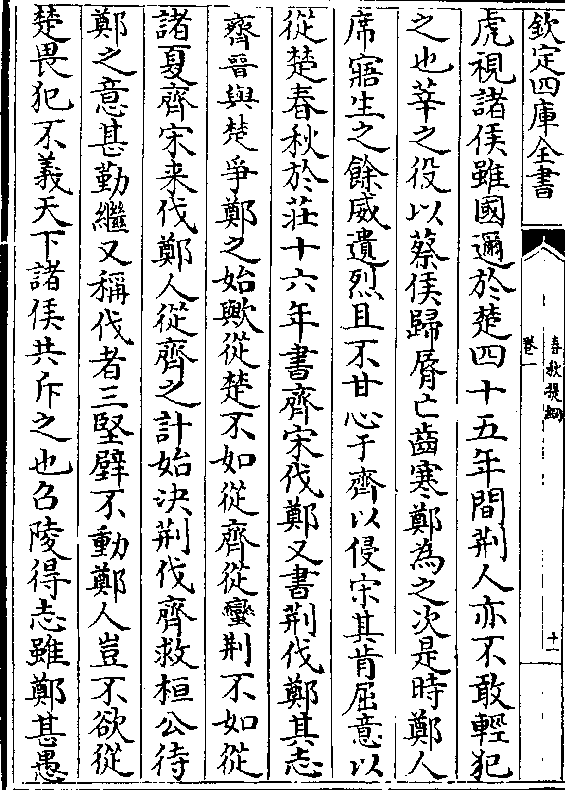 欽定四庫全書
春秋提綱
卷一
十一
虎視諸侯雖國邇於楚四十五年間荆人亦不敢輕犯
之也莘之役以蔡侯歸脣亡齒寒鄭為之次是時鄭人
席寤生之餘威遺烈且不甘心于齊以侵宋其肯屈意以
從楚春秋於莊十六年書齊宋伐鄭又書荆伐鄭其志
齊晉與楚爭鄭之始歟從楚不如從齊從蠻荆不如從
諸夏齊宋来伐鄭人從齊之計始决荆伐齊救桓公待
鄭之意甚勤繼又稱伐者三堅壁不動鄭人豈不欲從
楚畏犯不義天下諸侯共斥之也召陵得志雖鄭甚愚